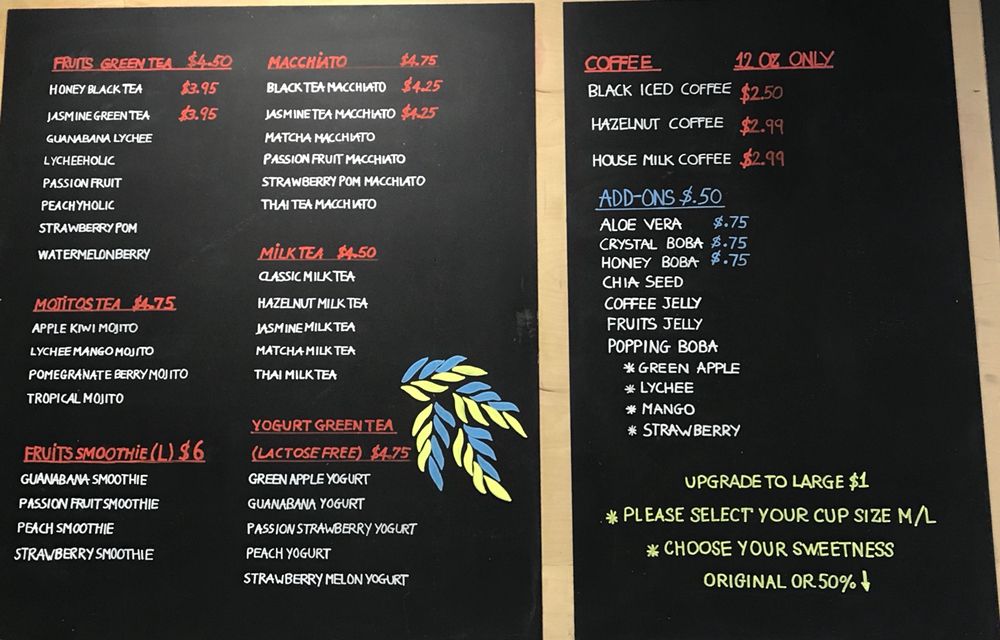 FRUITS GREEN TEA $4.50
HONEY BLACK TEA $3.95
JASMINE GREEN TEA $3.95
GUANABANA LYCHEE
LYCHEEHOLIC
PASSION FRUIT
PEACHYHOLIC
STRAWBERRY POM
WATERMELONBERRY
MOJITOS TEA $4.75
APPLE KIWI MOJITO
LYCHEE MANGO MOJITO
POMEGRANATE BERRY MOJITO
TROPICAL MOJITO
FRUITS SMOOTHIE (L) $6
GUANABANA SMOOTHIE
PASSION FRUIT SMOOTHIE
PEACH SMOOTHIE
STRAWBERRY SMOOTHIE
MACCHIATO $4.75
BLACK TEA MACCHIATO $4.25
JASMINE TEA MACCHIATO $4.25
MATCHA MACCHIATO
PASSION FRUIT MACCHIATO
STRAWBERRY POM MACCHIATO
THAI TEA MACCHIATO
MILK TEA $4.50
CLASSIC MILK TEA
HAZELNUT MILK TEA
JASMINE MILK TEA
MATCHA MILK TEA
THAI MILK TEA
YOGURT GREEN TEA
(LACTOSE FREE) $4.75
GREEN APPLE YOGURT
GUANABANA YOGURT
PASSION STRAWBERRY YOGURT
PEACH YOGURT
STRAWBERRY MELON YOGURT
COFFEE 12 OZ ONLY
BLACK ICED COFFEE $2.50
HAZELNUT COFFEE $2.99
HOUSE MILK COFFEE $2.99
ADD-ONS $.50
ALOE VERA $.75
CRYSTAL BOBA $.75
HONEY BOBA $.75
CHIA SEED
COFFEE JELLY
FRUITS JELLY
POPPING BOBA
* GREEN APPLE
* LYCHEE
* MANGO
* STRAWBERRY
UPGRADE TO LARGE $1
* PLEASE SELECT YOUR CUP SIZE M/L
* CHOOSE YOUR SWEETNESS
ORIGINAL OR 50% ↓